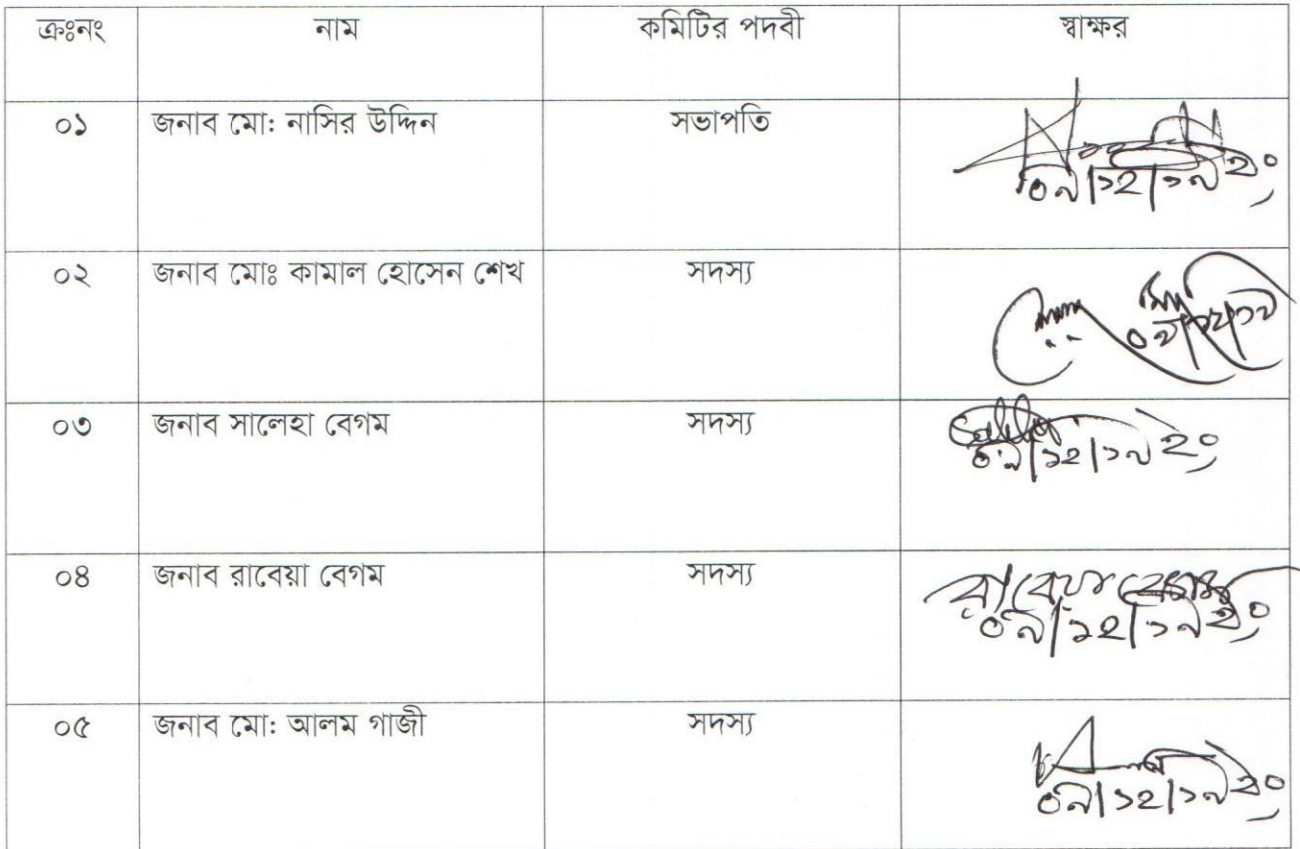 ক্রঃনং নাম কমিটির পদবী স্বাক্ষর
০১ জনাব মো: নাসির উদ্দিন সভাপতি
০৯/১২/১৯ ইং
০২ জনাব মোঃ কামাল হোসেন শেখ সদস্য
০৯/১২/১৯
০৩ জনাব সালেহা বেগম সদস্য
০৯/১২/১৯ ইং
০৪ জনাব রাবেয়া বেগম সদস্য
রাবেয়া বেগম
০৯/১২/১৯ ইং
০৫ জনাব মো: আলম গাজী সদস্য
০৯/১২/১৯ ইং